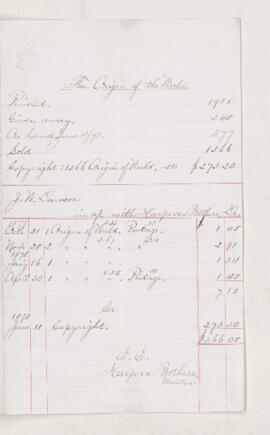 The Origin of the World.
Printed. 1981
Given away. 248
On hand June 11/78. 377
Sold 1366
Copyright: 1366 Origin of World, .20 $273.20
J. W. Dawson
in a/c with Harper & Brothers, Dr.
1877
Oct 31 1 Origin of World. Postage. 1 45
Nov 28 2 " " " " 2 91
1878
Jan 16 1 " " " 1 31
April 30 1 " " " Postage. 1 45
7 12
Cr.
1878
June 11 Copyright. 273.20
$266.08
E. E.
Harper & Brothers